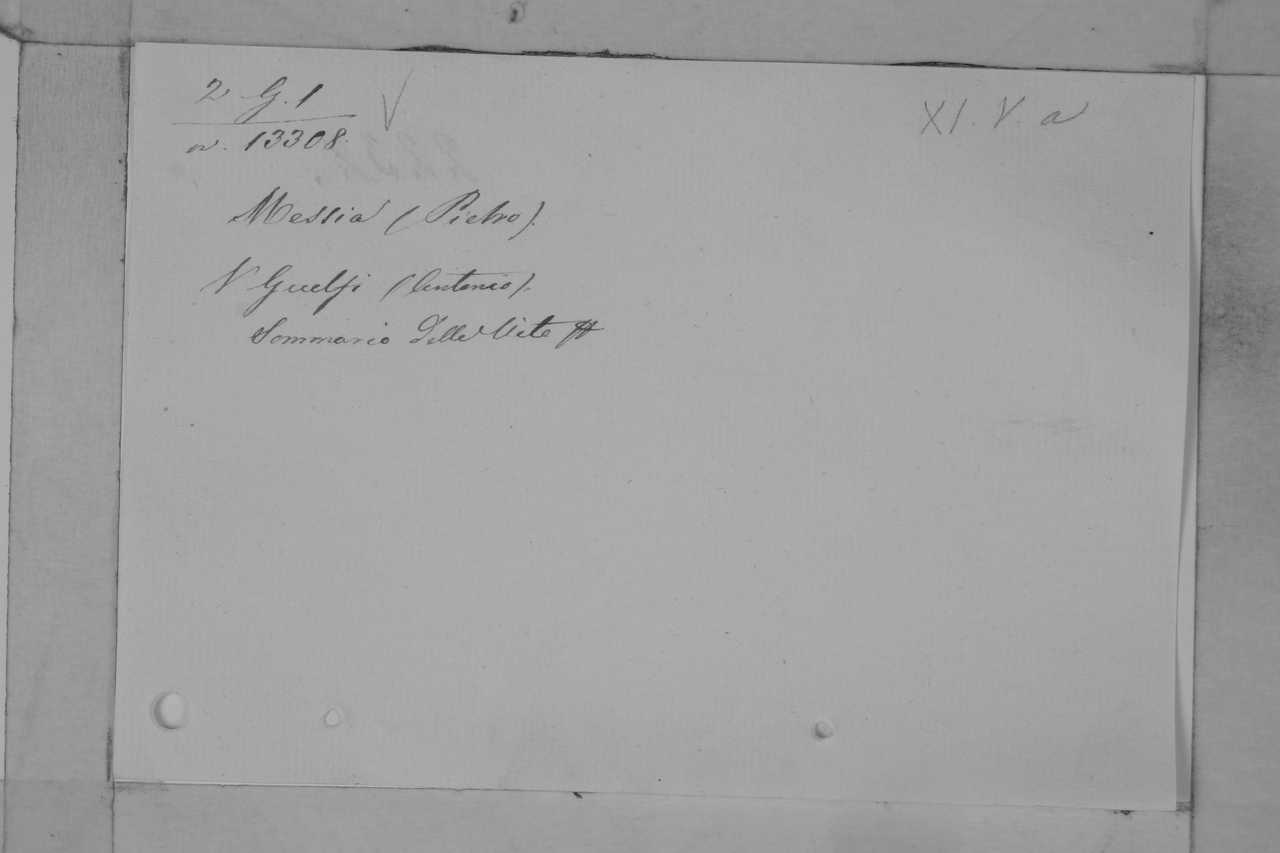 2 G. 1 V XI. V. a
n. 13308.
Messia (Pietro).
V Guelfi (Antonio).
Sommario delle Vite